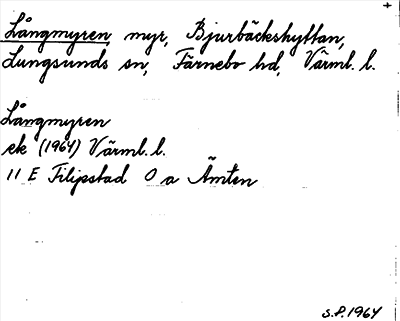 Långmyren, myr, Bjurbäckshyttan,
Lungsunds sn, Färnebo hd, Värml. l.
Långmyren
ek (1964) Värml. l.
11 E Filipstad O a Ämten
S.P. 1964